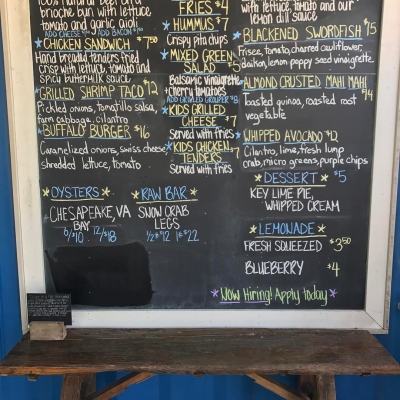 100% natural beef on a
brioche bun with lettuce,
tomato and garlic aioli
ADD CHEESE ADD BACON
CHICKEN SANDWICH $7.50
Hand breaded tenders fried
crisp with lettuce, tomato and
spicy buttermilk sauce
GRILLED SHRIMP TACO $12
Pickled onions, tomatillo salsa,
farm cabbage, cilantro
BUFFALO BURGER $16
Caramelized onions, swiss cheese,
shredded lettuce, tomato
FRIES $4
HUMMUS $7
Crispy pita chips
MIXED GREEN
SALAD $5
Balsamic vinaigrette
+ cherry tomatoes
ADD GRILLED GROUPER $8
KIDS GRILLED
CHEESE $7
Served with fries
KIDS CHICKEN
TENDERS $7
Served with fries
with lettuce, tomato and our
lemon dill sauce
BLACKENED SWORDFISH $15
Frisee, tomato, charred cauliflower,
daikon, lemon poppy seed vinaigrette
ALMOND CRUSTED MAHI MAHI
$14
Toasted quinoa, roasted root
vegetable
WHIPPED AVOCADO $12
Cilantro, lime, fresh lump
crab, micro greens, purple chips
DESSERT $5
KEY LIME PIE,
WHIPPED CREAM
OYSTERS
CHESAPEAKE, VA
BAY
6/$10 12/$18
RAW BAR
SNOW CRAB
LEGS
1/2# $12 1# $22
LEMONADE
FRESH SQUEEZED $3.50
BLUEBERRY $4
NOW Hiring! Apply today